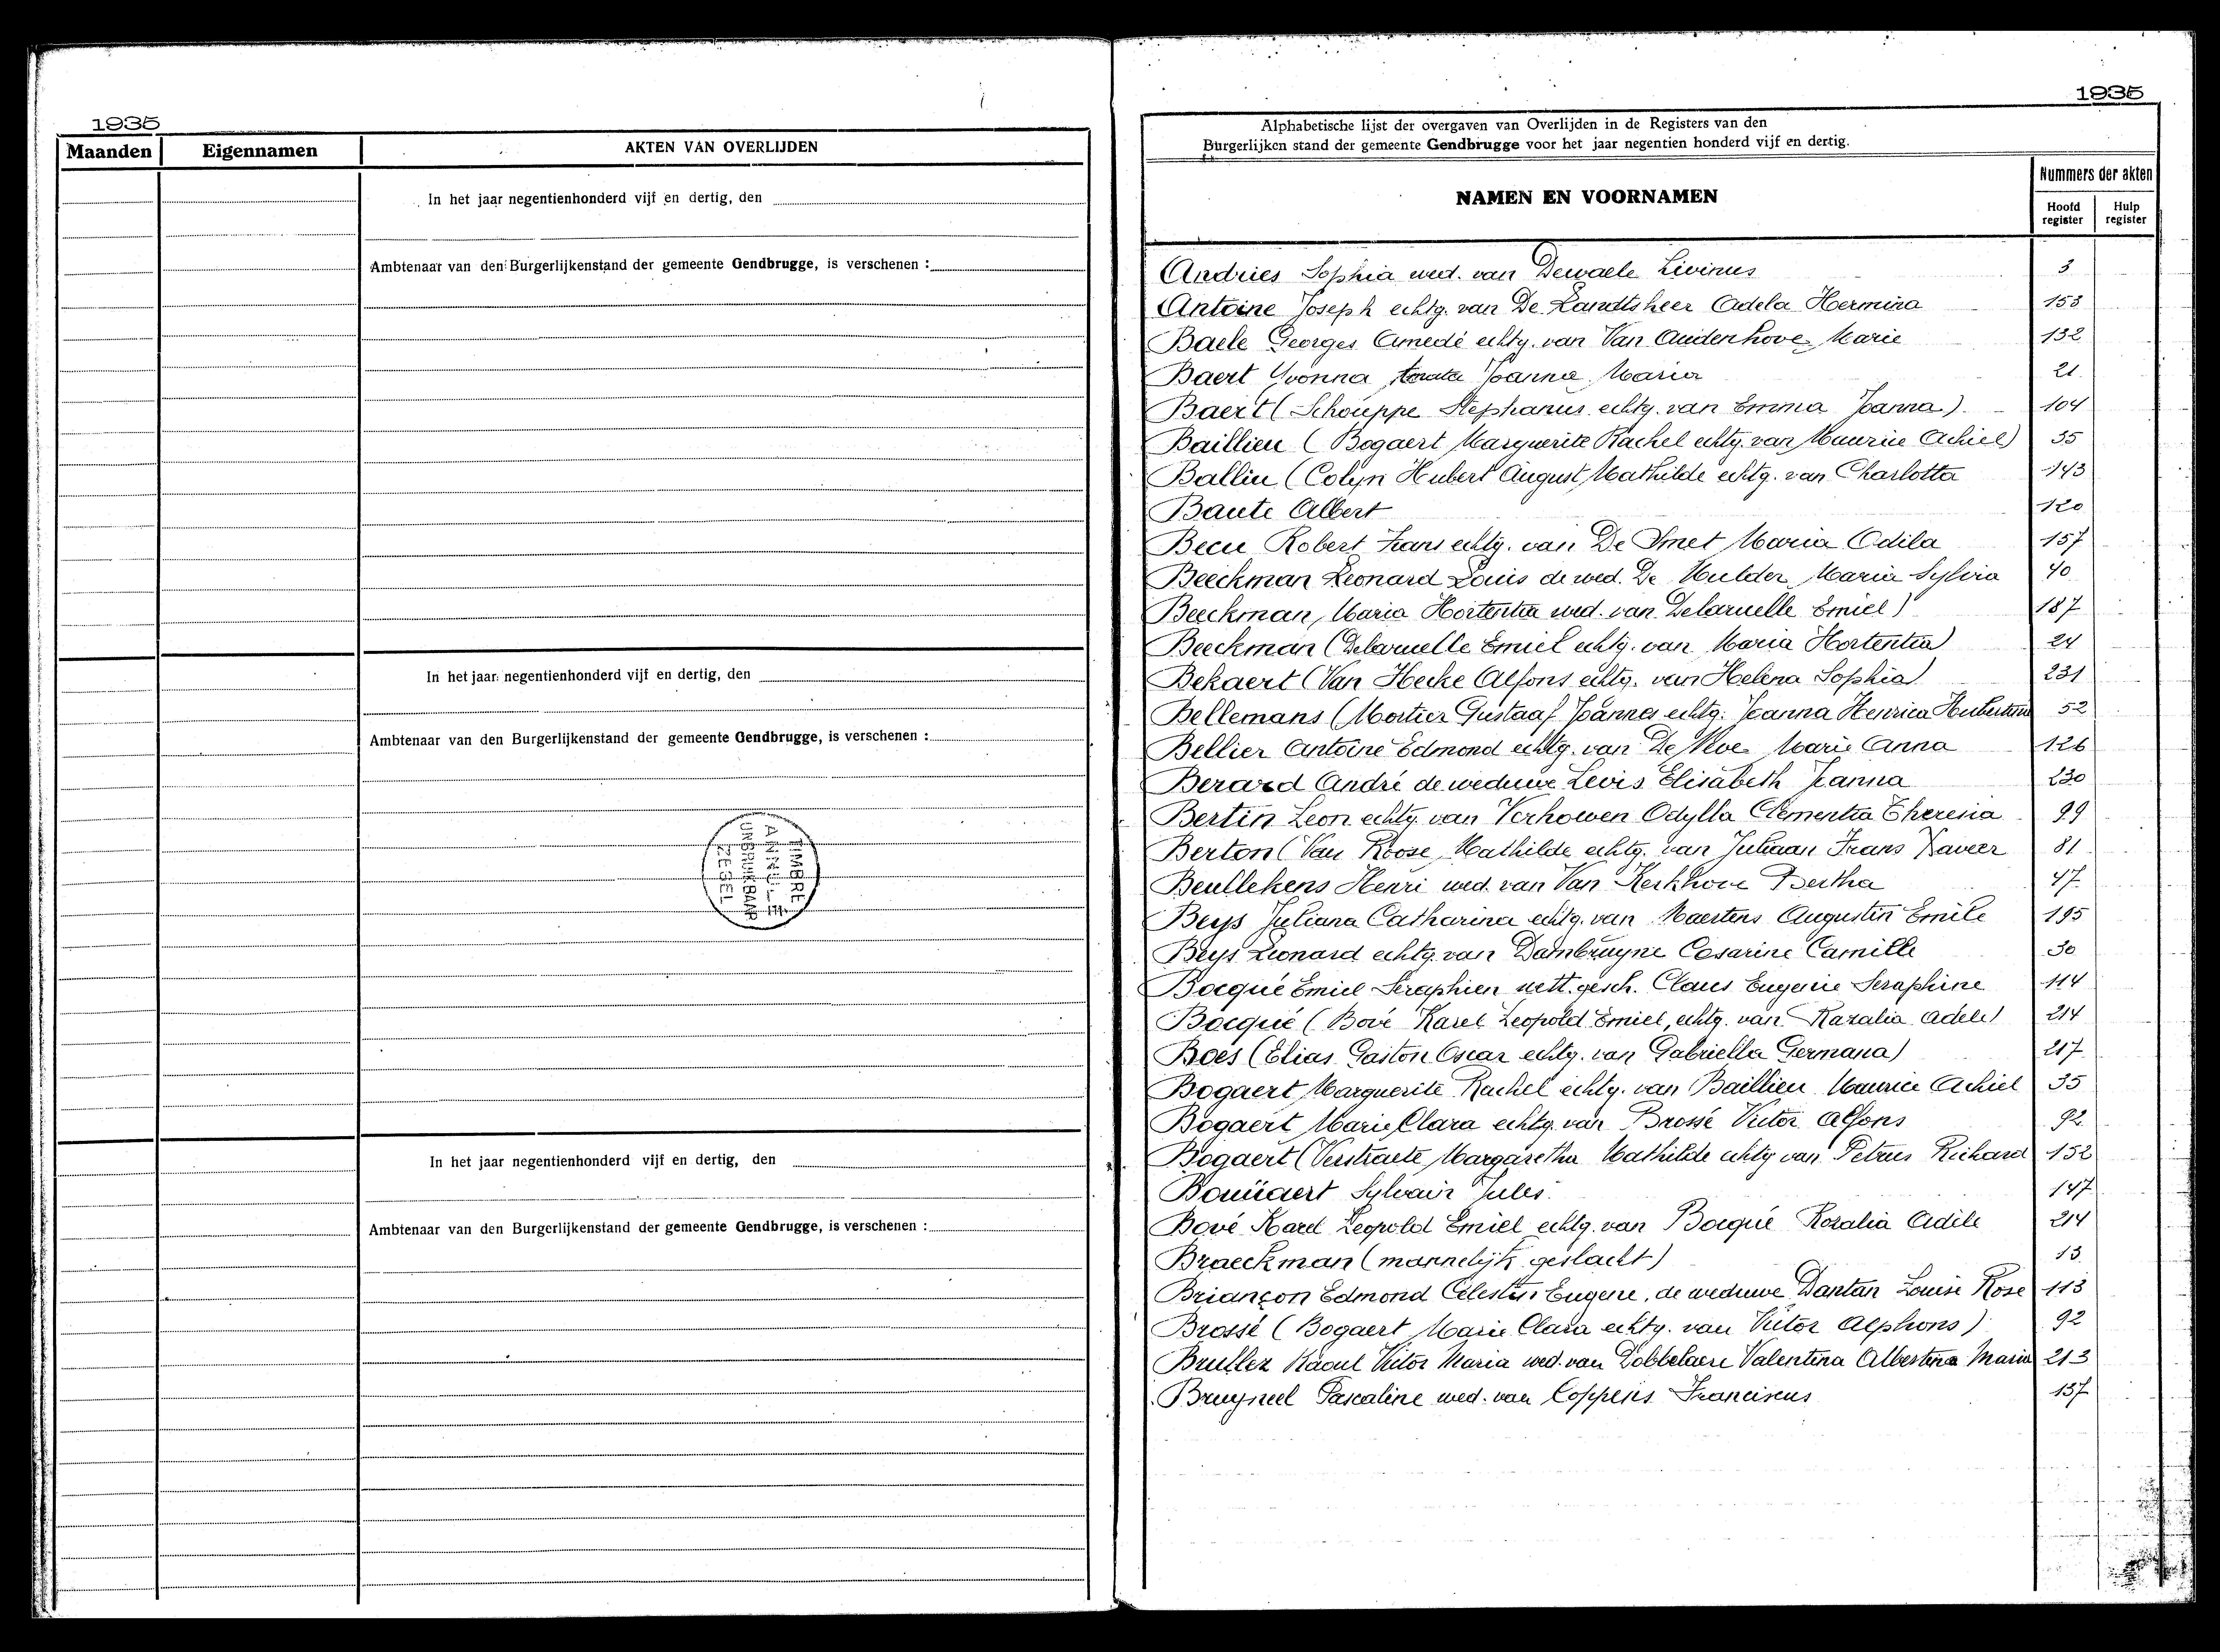 1935
Maanden Eigennamen AKTEN VAN OVERLIJDEN
In het jaar negentienhonderd vijf en dertig, den
Ambtenaar van den Burgerlijkenstand der gemeente Gendbrugge, is verschenen :
In het jaar negentienhonderd vijf en dertig, den
Ambtenaar van den Burgerlijkenstand der gemeente Gendbrugge, is verschenen :
TIMBRE
ANNULE
ONBRUIKBAAR
ZEGEL
In het jaar negentienhonderd vijf en dertig, den
Ambtenaar van den Burgerlijkenstand der gemeente Gendbrugge, is verschenen :
1935
Alphabetische lijst der overgaven van Overlijden in de Registers van den
Burgerlijken stand der gemeente Gendbrugge voor het jaar negentien honderd vijf en dertig.
NAMEN EN VOORNAMEN
Nummers der akten
Hoofd register Hulp register
Andries Sophia wed. van Dewaele Livinus 3
Antoine Joseph echtg. van De Landtsheer Adela Hermina 153
Baele Georges Amedé echtg. van Van Audenhove Marie 132
Baert Yvonna Joanna Maria 21
Baert (Schouppe Stephanus echtg. van Emma Joanna) 104
Baillieu (Bogaert Marguerite Rachel echtg. van Maurice Achiel) 35
Balliu (Colyn Hubert August Mathilde echtg. van Charlotta 143
Baute Albert 120
Becu Robert Frans echtg. van De Smet Maria Odila 157
Beeckman Leonard Louis de wed. De Mulder Maria Sylvia 40
Beeckman, Maria Hortentia wed. van Delaruelle Emiel) 187
Beeckman (Delaruelle Emiel echtg. van Maria Hortentia) 24
Bekaert (Van Hecke Alfons echtg. van Helena Sophia) 231
Bellemans (Mortier Gustaaf Joannes echtg. Joanna Henrica Hubertina 52
Bellier Antoine Edmond echtg. van De Vloe Marie Anna 126
Berard André de weduwe Levis Elisabeth Joanna 230
Bertin Leon echtg. van Verhowen Odylla Clementia Theresia 99
Berton (Van Roose Mathilde echtg. van Juliaan Frans Xaveer 81
Beullekens Henri wed. van Van Kerkhove Bertha 47
Beys Juliana Catharina echtg. van Maertens Augustin Emile 195
Beys Leonard echtg. van Dambruyne Cesarine Camille 30
Bocqué Emiel Seraphien wett. gesch. Claus Eugenie Seraphine 114
Bocqué (Bové Karel Leopold Emiel, echtg. van Rozalia Adele) 214
Boes (Elias Gaston Oscar echtg. van Gabriella Germana) 217
Bogaert Marguerite Rachel echtg. van Baillieu Maurice Achiel 35
Bogaert Marie Clara echtg. van Brossé Victor Alfons 92
Bogaert (Verstraete Margaretha Mathilde echtg van Petrus Richard 152
Bouüaert Sylvain Jules 147
Bové Karel Leopold Emiel echtg. van Bocqué Rozalia Adile 214
Braeckman (mannelijk geslacht) 13
Briançon Edmond Célestin Eugene, de weduwe Dantan Louise Rose 113
Brossé (Bogaert Marie Clara echtg. van Victor Alphons) 92
Brullez Raoul Victor Maria wed. van Dobbelaere Valentina Albertina Maria 213
Bruyneel Pascaline wed. van Coppens Franciscus 137